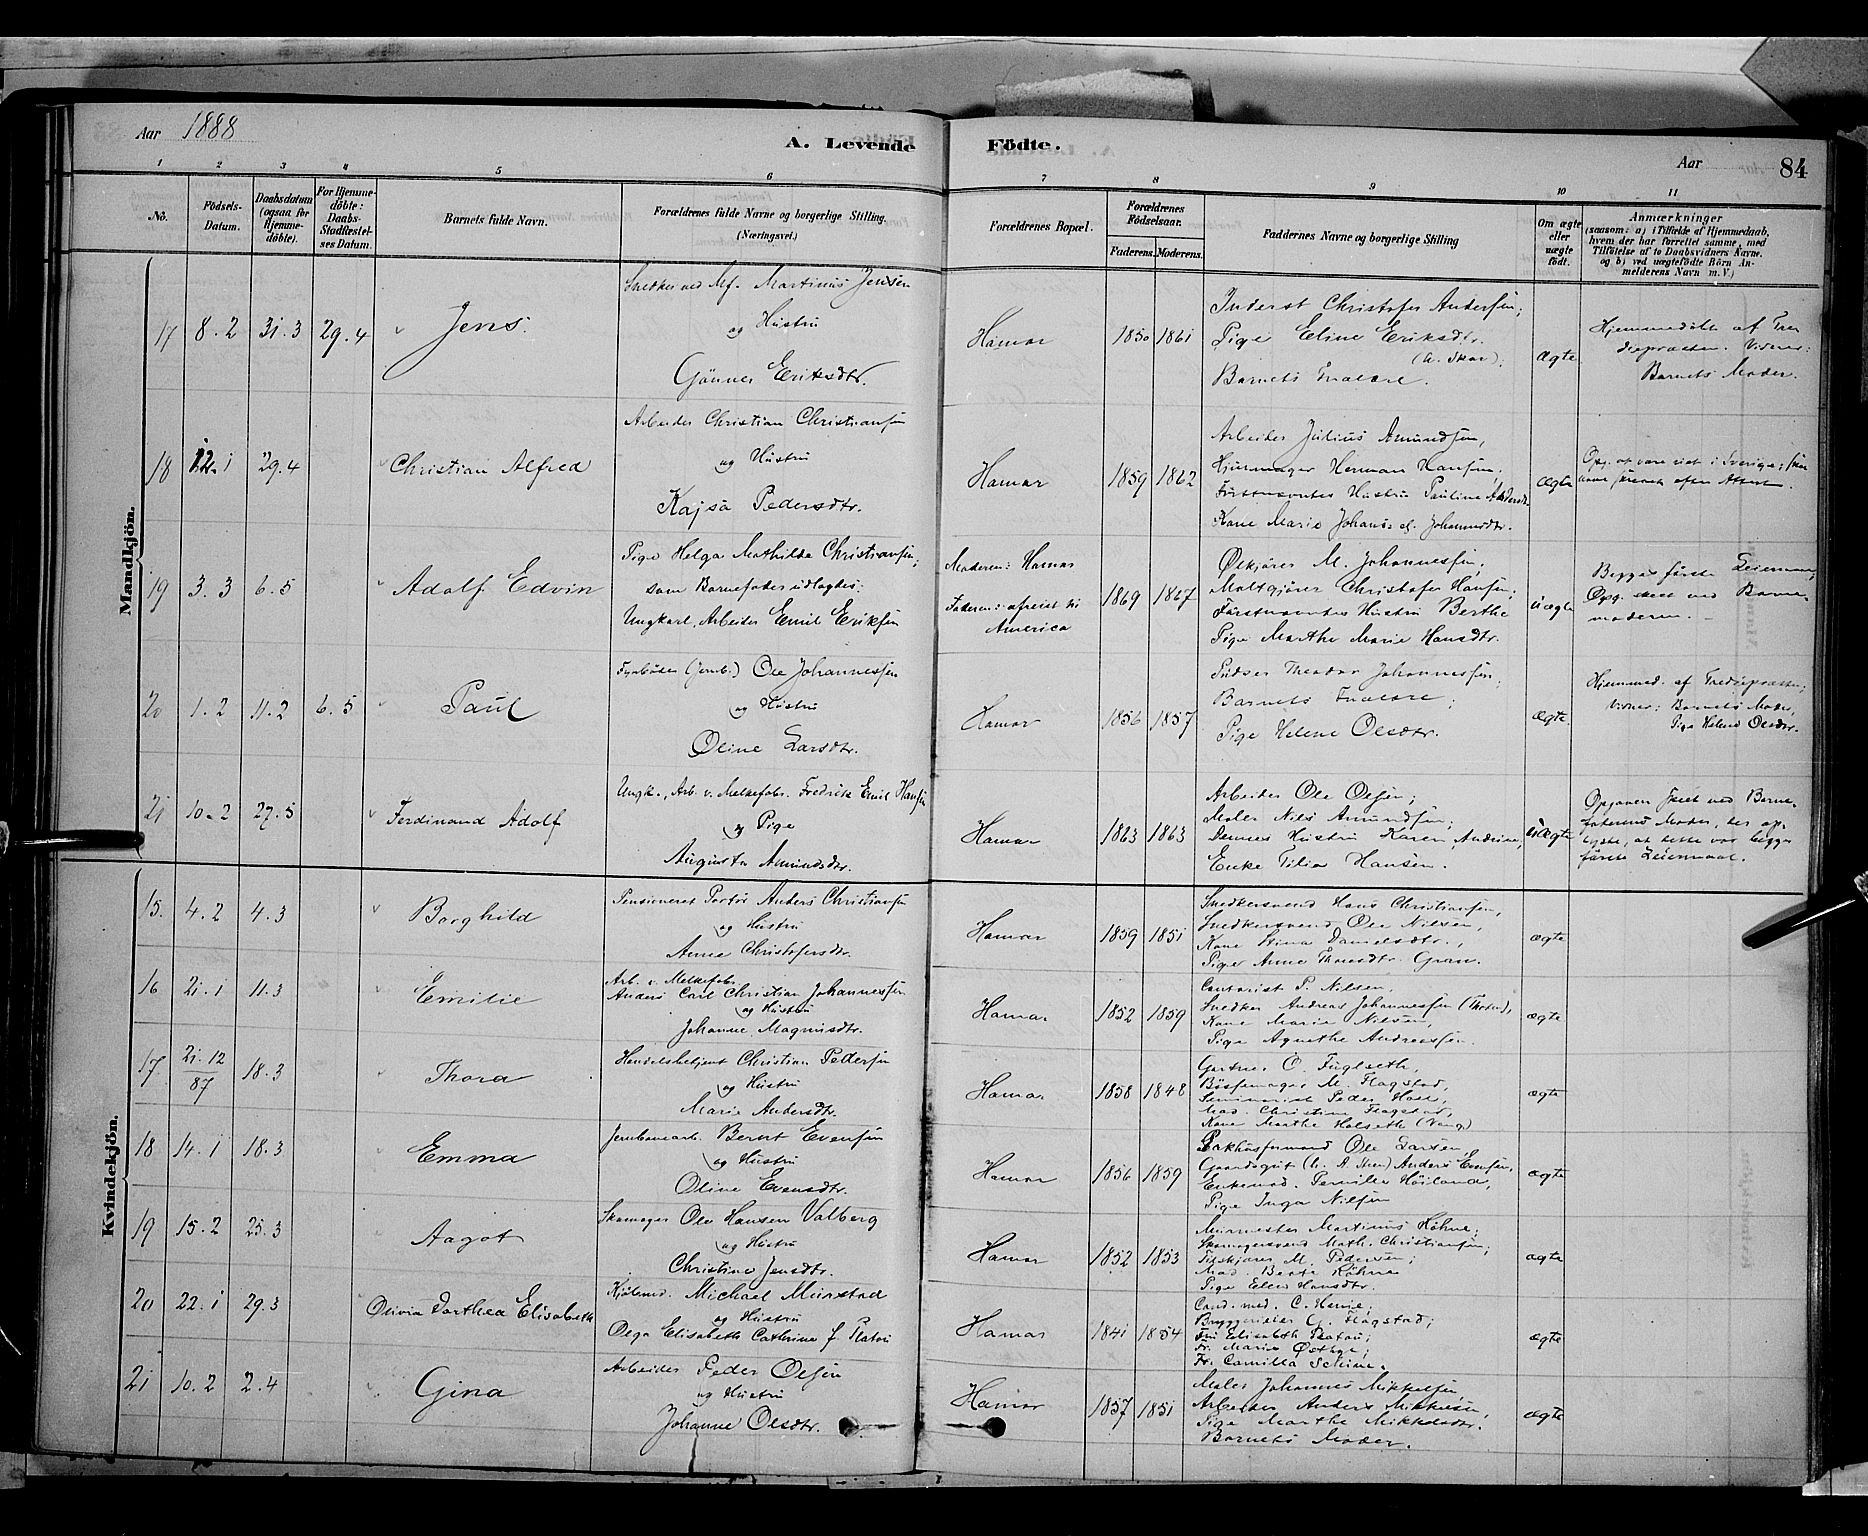 Aar 1888
A. Levende Födte.
Aar 84
1 2 3 4 5 6 7 8 9 10 11
No.
Födsels-Datum.
Daabsdatum (ogsaa for Hjemmedöbte).
For Hjemmedöbte: Daabs-Stadfæstelses Datum.
Barnets fulde Navn.
Forældrenes fulde Navne og borgerlige Stilling. (Næringsvei.)
Forældrenes Bopæl.
Forældrenes Födselsaar.
Faderens. Moderens.
Faddernes Navne og borgerlige Stilling
Om ægte eller uægte födt.
Anmærkninger (saasom: a) i Tilfælde af Hjemmedaab, hvem der har forrettet samme, med Tilföielse af to Daabsvidners Navne, og b) ved uægtefödte Börn Anmelderens Navn m. V.)
Mandkjön.
17 8.2 31.3 29.4 Jens.
Snedker ved Mf. Martinus Jensen
og Hustru
Gönner Eriksdtr.
Hamar 1850 1861
Inderst Christofer Andersen;
Pige Eline Eriksdtr.
Barnets Forældre.
ægte
Hjemmedöbt af Tre
diepræsten. Vidner:
Barnets Moder.
18 12.1 29.4 Christian Alfred
Arbeider Christian Christiansen
og Hustru
Kajsa Pedersdtr.
Hamar 1859 1862
Arbeider Julius Amundsen,
Hjulmager Herman Hansen,
Førstnævntes Hustru Pauline Andersdtr.
Kone Marie Johans. ef. Johannesdtr.
ægte
19 3.3 6.5 Adolf Edvin
Pige Helga Mathilde Christiansen;
som Barnefader udlagdes:
Ungkarl, Arbeider Emil Eriksen
Moderen: Hamar
Faderen: afreist til
America
1869 1867
M. Johannessen,
Maltgjører Christofer Hansen;
Førstnævntes Hustru Berthe
Pige Marthe Marie Hansdtr.
uægte
Begges første Leiermaal,
Opg. skeet ved Barne-
moderen.
20 1.2 11.2 6.5 Paul
Fyrbøder (Jernb.) Ole Johannessen
og Hustru
Oline Larsdtr.
Hamar 1856 1857
Pudser Theodor Johannessen;
Barnets Forældre;
Pige Helene Olsdtr.
ægte.
Hjemmed. af Tredjepræsten;
Vidner: Barnets Moder,
Pige Helene Olsdtr.
21 10.2 27.5 Ferdinand Adolf
Ungk., Arb. v. Melkefabr. Fredrik Emil Hansen
og Pige
Augusta Amundsdtr.
Hamar 1863 1863
Arbeider Ole Olsen;
Maler Nils Amundsen;
Dennes Hustru Karen Andrine,
Enke Tilia Hansen.
uægte
Opgaven skeet ved Barne-
faderens Moder, der op-
lyste, at dette var begges
første Leiermaal.
Kvindekjön.
15. 4.2 4.3 Borghild
Pensioneret Portör Anders Christiansen
og Hustru
Anne Christofersdtr.
Hamar 1859 1851
Snedkersvend Hans Christiansen,
Snedkersvend Ole Nilsen,
Kone Stina Danielsdtr.,
Pige Anne Thorsdtr. Gran.
ægte
16 21.1 11.3 Emilie
Arb. v. Melkefabr.
Anders Carl Christian Johannessen
og Hustru
Johanne Magnusdtr.
Hamar 1852 1859
Contorist P. Nilsen,
Snedker Andreas Johannessen,
Kone Marie Nilsen,
Pige Agnethe Andreassen.
ægte
17 21.12/87 18.3 Thora
Handelsbetjent Christian Pedersen
og Hustru
Marie Andersdtr.
Hamar 1858 1848
Gartner O. Fuglseth,
Bøssemager M. Flagstad,
Seminarist Peder Holt,
Mad. Christine Flagstad,
Kone Marthe Holseth (Vang)
ægte
18 14.1 18.3 Emma
Jernbanearb. Bernt Evensen
og Hustru
Oline Evensdtr.
Hamar 1856 1859
Pakhusformand Ole Larsen,
Anders Evensen,
Enkemad. Pernille Höiland,
Pige Inga Nilsen
ægte
19 15.2 25.3 Aagot
Skomager Ole Hansen Valberg
og Hustru
Christine Jensdtr.
Hamar 1852 1853
Murmester Martinus Höhne;
Skomagersvend Math. Christiansen;
M. Pedersen;
Mad. Berte Höhne
Pige Ellen Hansdtr.
ægte
20 22.1 29.3 Olivia Dorthea Elisabeth
Kjøbmd. Michael Mürstad
og Hustru
Olga Elisabeth Cathrine f. Platou
Hamar 1841 1854
Cand. med. C.
Bryggerieier O. Flagstad;
Fru Elisabeth Platou;
Fr. Marie Østbye;
Fr. Camilla
ægte
21 10.2 2.4 Gina
Arbeider Peder Olsen
og Hustru
Johanne Olsdtr.
Hamar 1857 1851
Maler Johannes Mikkelsen,
Arbeider Anders Mikkelsen,
Pige Marthe Mikkelsdtr.
Barnets Moder.
ægte